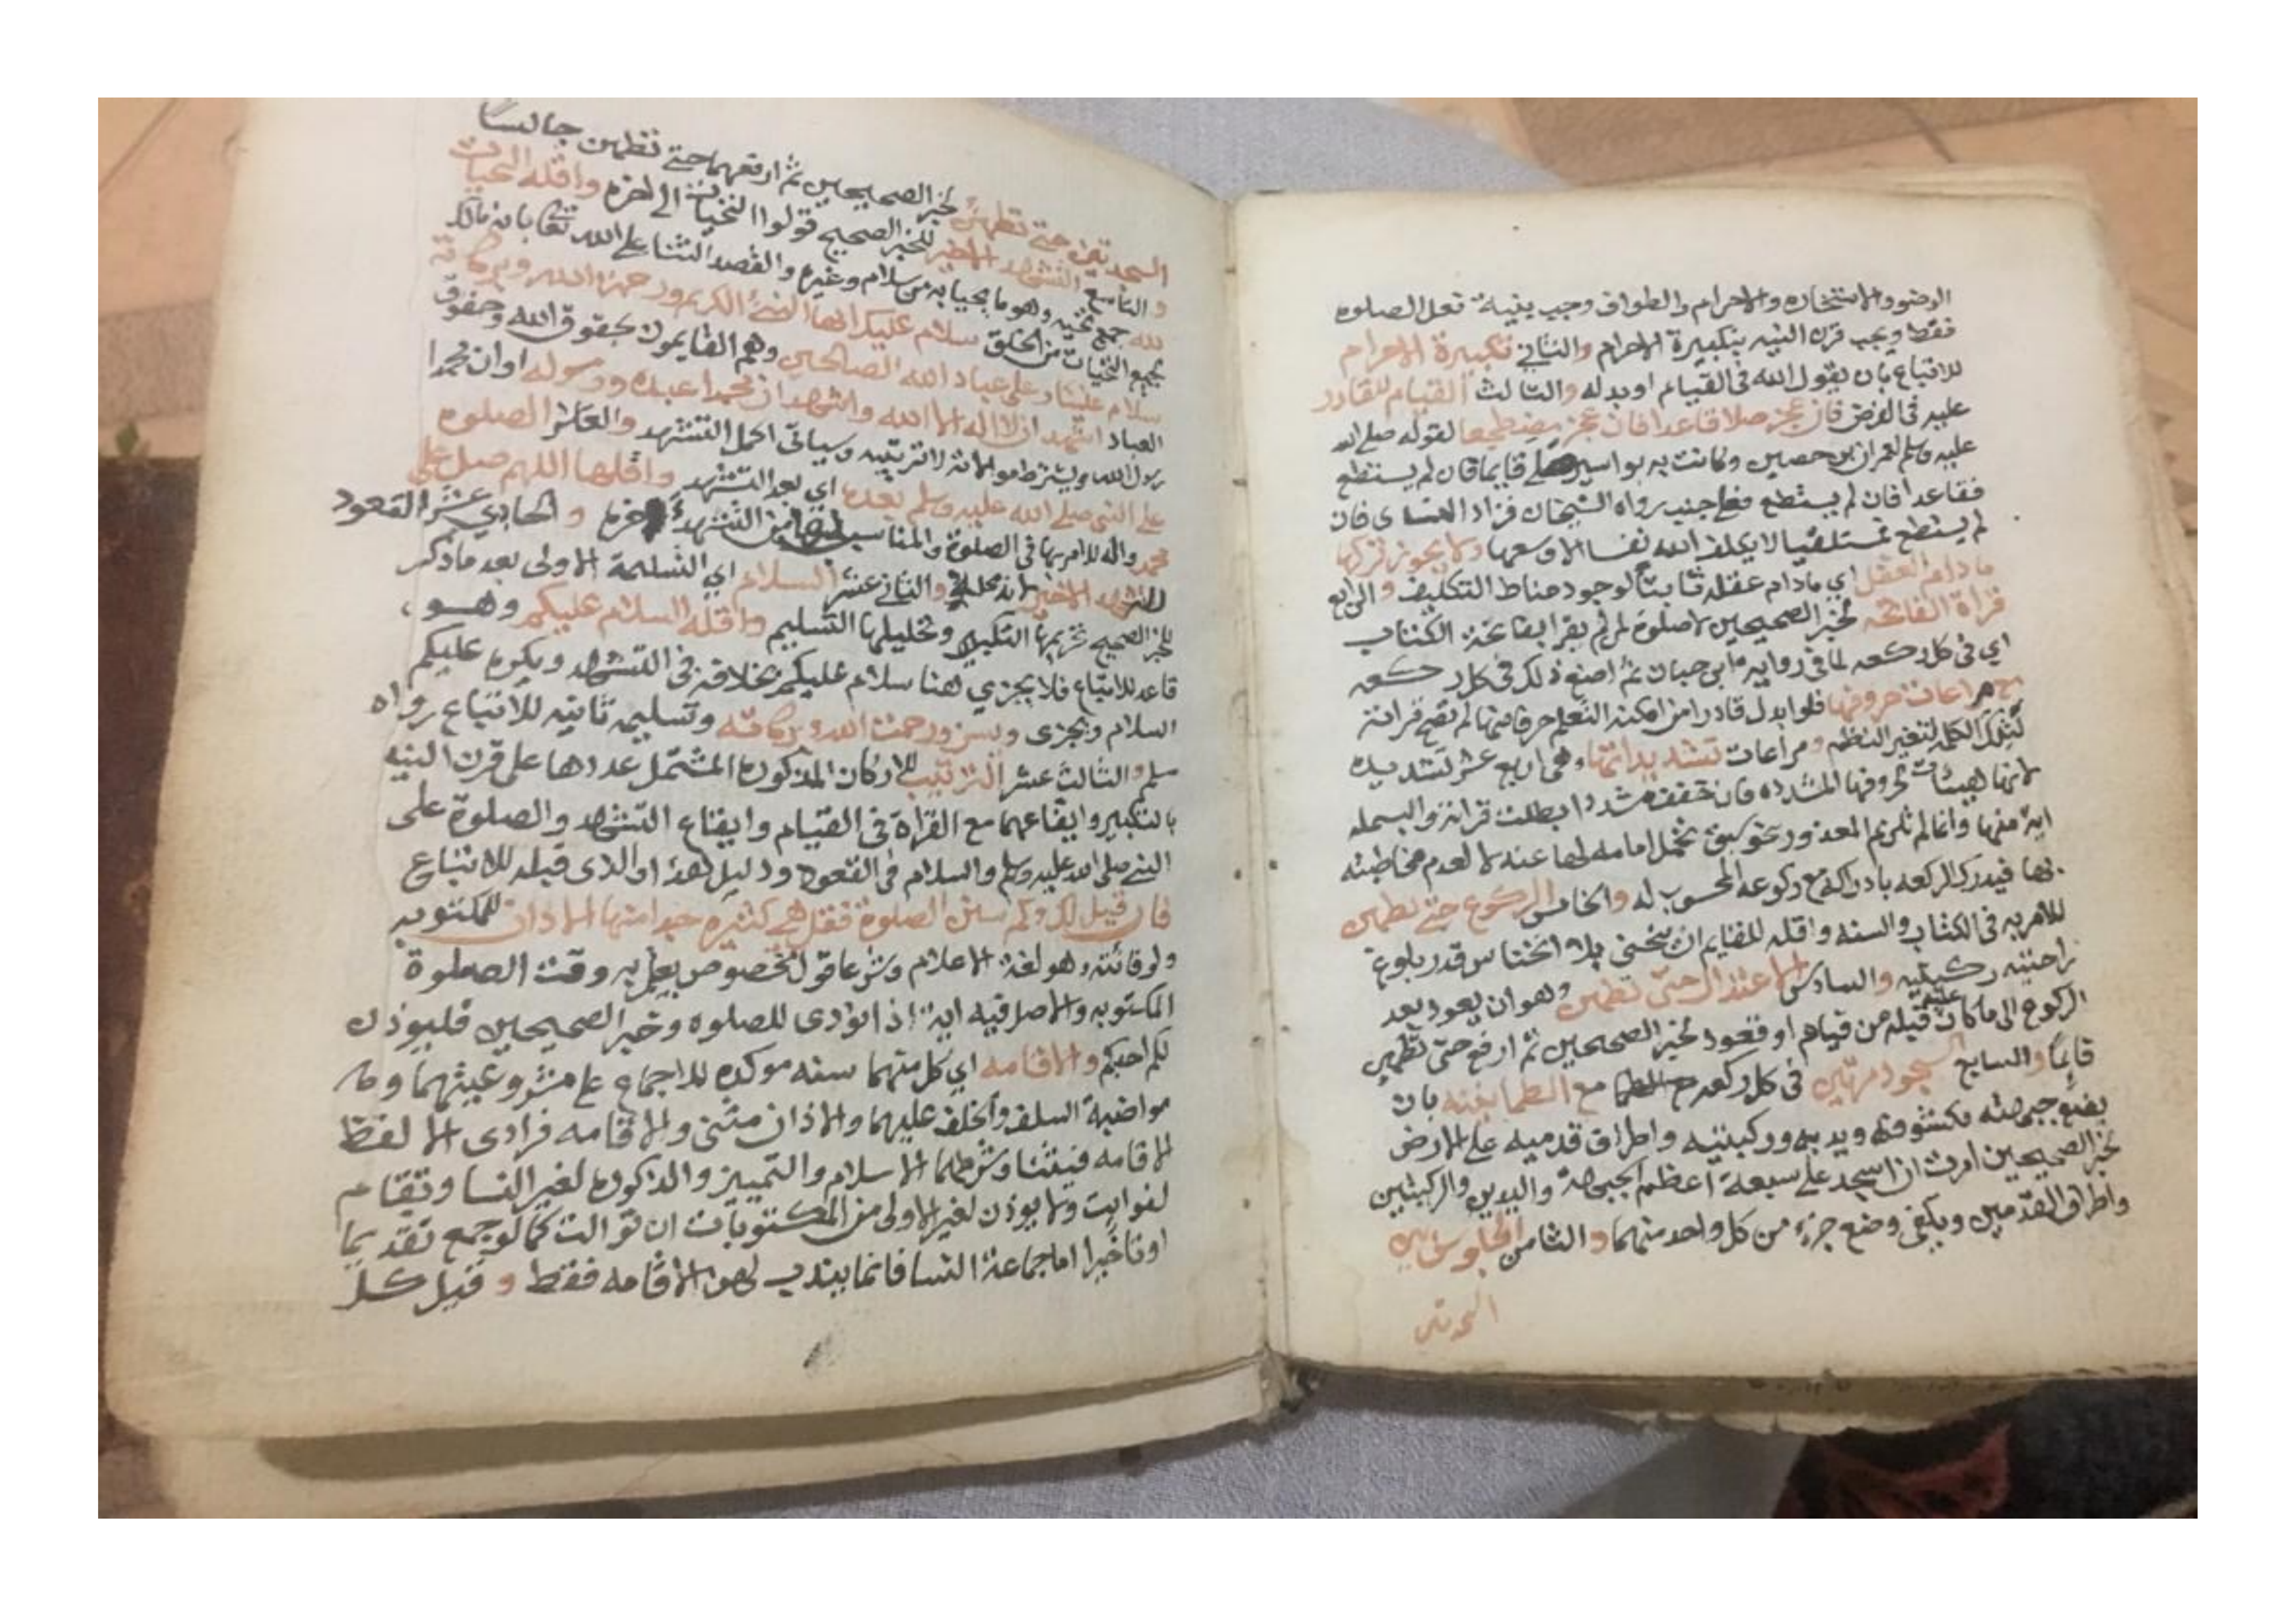 الوضو والاستخاره والاحرام والطواف وجب بنية فعل الصلوه
فقط ويجب قرن النيه بتكبيرة الاحرام والثاني تكبيرة الاحرام
للاتباع بان يقول الله في القيام او بدله والثالث القيام للقادر
عليه في الفرض فان عجز صلا قاعدا فان عجز مضطجعا لقوله صلى الله
عليه وسلم لعمران بن حصين وكانت به بواسير صلي قايما فان لم يستطع
فقاعدا فان لم يستطع فعلى جنب رواه الشيخان فزاد النساى فان
لم يستطع فمستلقيا لا يكلف الله نفسا الا وسعها ولا يجوز تركها
ما دام العقل اي مادام عقله ثابتا لوجود مناط التكليف والرابع
قراة الفاتحه لخبر الصحيحين لا صلوة لمن لم يقرا بفاتحة الكتاب
اي في كل ركعه لما في رواية ابن حبان ثم اصنع ذلك في كل ركعه
مع مراعات حروفها فلو ابدل قادر او من امكنه التعلم حرفا منها لم تصح قرائته
لتلك الكلمه لتغير النظم ومراعات تشديداتها وهي اربع عشر تشديده
لانها هيئات لحروفها المشدده فان خفف مشددا بطلت قرائته والبسمله
اية منها وانما لم تلزم المعذور بنحو سبق تحمل امامه لها عنه لا لعدم مخاطبته
بها فيدرك الركعه بادراكه مع ركوعه المحسوب له والخامس الركوع حتى تطمين
للامر به في الكتاب والسنه واقله للقايم ان ينحني بلا انخناس قدر بلوغ
راحتيه ركبتيه والسادس الاعتدال حتى تطمين وهو ان يعود بعد
الركوع الى ما كان عليه قبله من قيام او قعود لخبر الصحيحين ثم ارفع حتى تطمين
قايما والسابع السجود مرتين في كل ركعه مع الطمانينه بان
يضع جبهته مكشوفة ويديه وركبتيه واطراف قدميه على الارض
لخبر الصحيحين امرت ان اسجد على سبعة اعظم الجبهة واليدين والركبتين
واطراف القدمين ويكفي وضع جزء من كل واحد منهما والثامن الجلوس بين
السجدتين
السجدتين حتى تطمئن لخبر الصحيحين ثم ارفعهما حتى تطمين جالسا
والتاسع التشهد الاخير للخبر الصحيح قولوا التحيات الى اخره واقله التحيات
لله جمع تحيه وهو ما يحيا به من سلام وغيره والقصد الثنا على الله تعالى بانه مالك
لجميع التحيات من الخلق سلام عليك ايها النبي الكريم ورحمة الله وبركاته
سلام علينا وعلى عباد الله الصالحين وهم القايمون بحقوق الله وحقوق
العباد اشهد ان لا اله الا الله واشهد ان محمدا عبده ورسوله او ان محمدا
رسول الله ويشترط موالاته لا ترتيبه وسياتى اكمل التشهد والعاشر الصلوة
على النبي صلى الله عليه وسلم بعده اي بعد التشهد واقلها اللهم صل على
محمد واله للامر بها في الصلوة والمناسب لها من التشهد اخره والحادي عشر القعود
للتشهد الاخير لانه محله والثاني عشر السلام اي التسليمة الاولى بعد ما ذكر
للخبر الصحيح تحريمها التكبير وتحليلها التسليم واقله السلام عليكم وهو
قاعد للاتباع فلا يجزي هنا سلام عليكم بخلافه في التشهد ويكره عليكم
السلام ويجزى ويسن ورحمت الله وبركاته وتسليمه ثانيه للاتباع رواه
مسلم والثالث عشر الترتيب للاركان المذكوره المشتمل عددها على قرن النيه
بالتكبير وايقاعهما مع القراة في القيام وايقاع التشهد والصلوة على
النبي صلى الله عليه وسلم والسلام في القعود ودليل هذا والذى قبله للاتباع
فان قيل لك وكم سنن الصلوة فقل هي كثيره جدا منها الاذان للمكتوبه
ولو فائته وهو لغة الاعلام وشرعا قول مخصوص يعلم به وقت الصلوة
المكتوبه والاصل فيه اية اذا نودى للصلوه وخبر الصحيحين فليوذن
لكم احدكم والاقامه اي كل منهما سنه موكده للاجماع على مشروعيتهما وما
مواضبة السلف والخلف عليهما والاذان مثنى والاقامه فرادى الا لفظ
الاقامه فيثنا وشرطهما الاسلام والتمييز والذكوره لغير النسا وتقام
لفوايت ولا يوذن لغير الاولى من المكتوبات ان توالت كما لو جمع تقديما
او تاخيرا اما جماعة النسا فانما يندب لهن الاقامه فقط وقبل كل